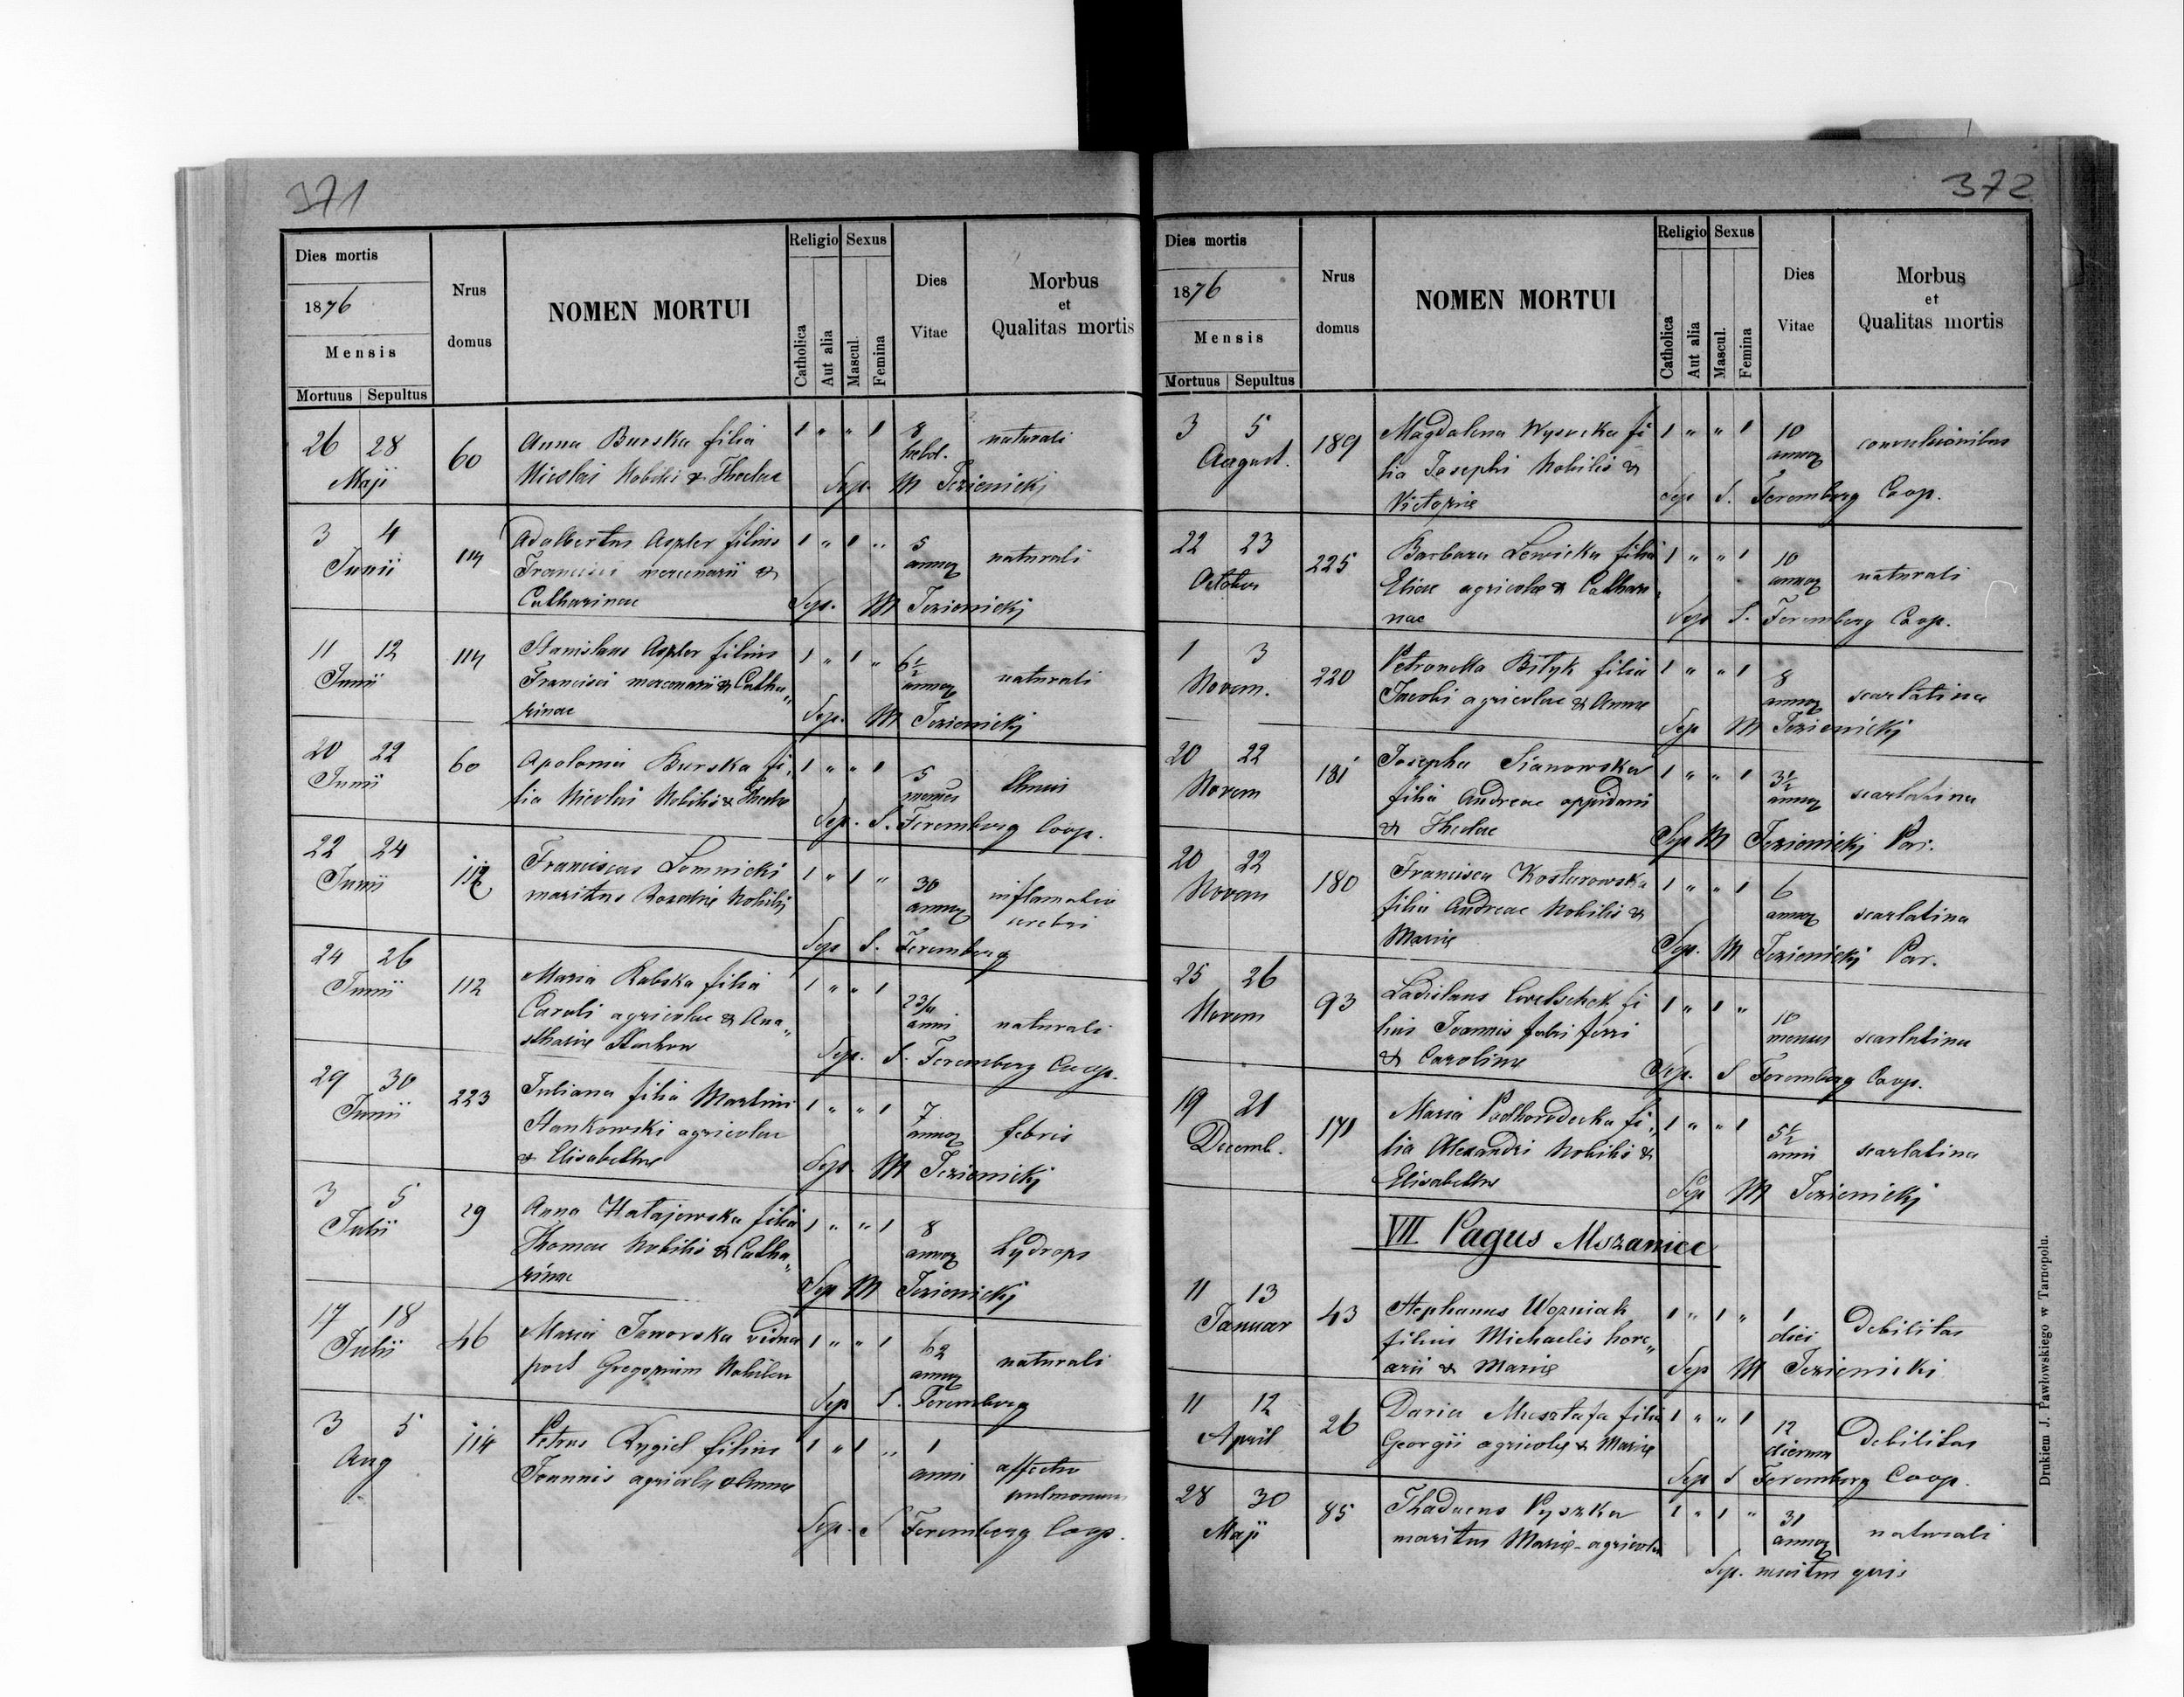 371
Dies mortis
1876
Mensis
Mortuus | Sepultus
Nrus domus
NOMEN MORTUI
Religio
Catholica
Aut alia
Sexus
Mascul.
Femina
Dies Vitae
Morbus
et
Qualitas mortis
26 28 Maji 60
Anna Burska filia
Nicolai Nobilis & Theclae
1 " " 1 8 hebd. naturali
Sep. M Jezienickj
3 4 Junii 114
Adalbertus Aszler filius
Francisci mercenarii &
Catharinae
1 " 1 " 5 annoz naturali
Sep. M Jezienickj
11 12 Junii 114
Stanislaus Aszler filius
Francisci mercenarii & Catha„
rinae
1 " 1 " 6½ annoz naturali
Sep. M Jezienickj
20 22 Junii 60
Apolonia Burska fi„
lia Nicolai Nobilis & Theclae
1 " " 1 5 menses
Sep. S. Feremberg Coop.
22 24 Junii 112
Franciscus Lomnicki
maritus Rosaliæ Nobilis
1 " 1 " 30 annoz inflamatio
cerebri
Sep S. Feremberg
24 26 Junii 112
Maria Rabska filia
Caroli agricolae & Ana„
sthasiæ
1 " " 1 2¾ anni naturali
Sep. S. Feremberg Coop.
29 30 Junii 223
Juliana filia Martini
Stankowski agricolae
& Elisabethæ
1 " " 1 7 annoz febris
Sep. M Jezienickj
3 5 Julii 29
Anna Hatajewska filia
Thomae Nobilis & Catha„
rinae
1 " " 1 8 annoz hydrops
Sep M Jezienickj
17 18 Julii 46
Maria Janorska vidua
post Gregorium Nobilem
1 " " 1 62 annoz naturali
Sep S. Feremberg
3 5 Aug 114
Petrus Rygiel filius
Joannis agricolæ & Annae
1 " 1 " 1 anni affectio
pulmonum
Sep. S Feremberg Coop.
372
Dies mortis
1876
Mensis
Mortuus | Sepultus
Nrus domus
NOMEN MORTUI
Religio
Catholica
Aut alia
Sexus
Mascul.
Femina
Dies Vitae
Morbus
et
Qualitas mortis
3 5 August. 189
Magdalena Wysocka fi
lia Josephi Nobilis &
Victoriæ
1 " " 1 10 annoz convulsionibus
Sep S. Feremberg Coop.
22 23 October 225
Barbara Lewicka filia
Eliae agricolæ & Cathari„
nae
1 " " 1 10 annoz naturali
Sep S. Feremberg Coop.
1 3 Novem. 220
Petronella Bilyk filia
Jacobi agricolae & Annae
1 " " 1 8 annoz scarlatina
Sep M Jezienickj
20 22 Novem 181
Josepha Sianowska
filia Andreae oppidani
& Theclae
1 " " 1 3½ annoz scarlatina
Sep M Jezienickj Par.
20 22 Novem 180
Francisca Kosturowska
filia Andreae Nobilis &
Mariæ
1 " " 1 6 annoz scarlatina
Sep. M Jezienickj Par.
25 26 Novem 93
Ladislaus Cwetschek fi
lius Joannis fabri ferri
& Carolinæ
1 " 1 " 10 menses scarlatina
Sep. S Feremberg Coop.
19 21 Decemb. 171
Maria Podhorodecka fi„
lia Alexandri Nobilis &
Elisabethæ
1 " " 1 5½ annii scarlatina
Sep M Jezienickj
VII. Pagus Mszaniec
11 13 Januar 43
Stephanus Wozniak
filius Michaelis hore„
arii & Mariæ
1 " 1 " 1 diei Debilitas
Sep M Jezienicki
11 12 April 26
Daria Musztafa filia
Georgii agricolæ & Mariæ
1 " " 1 12 dierum Debilitas
Sep S Feremberg Coop.
28 30 Maji 85
Thadaeus Pyszka
maritus Mariæ agricola
1 " 1 " 31 annoz naturali
Sep.
Drukiem J. Pawłowskiego w Tarnopolu.